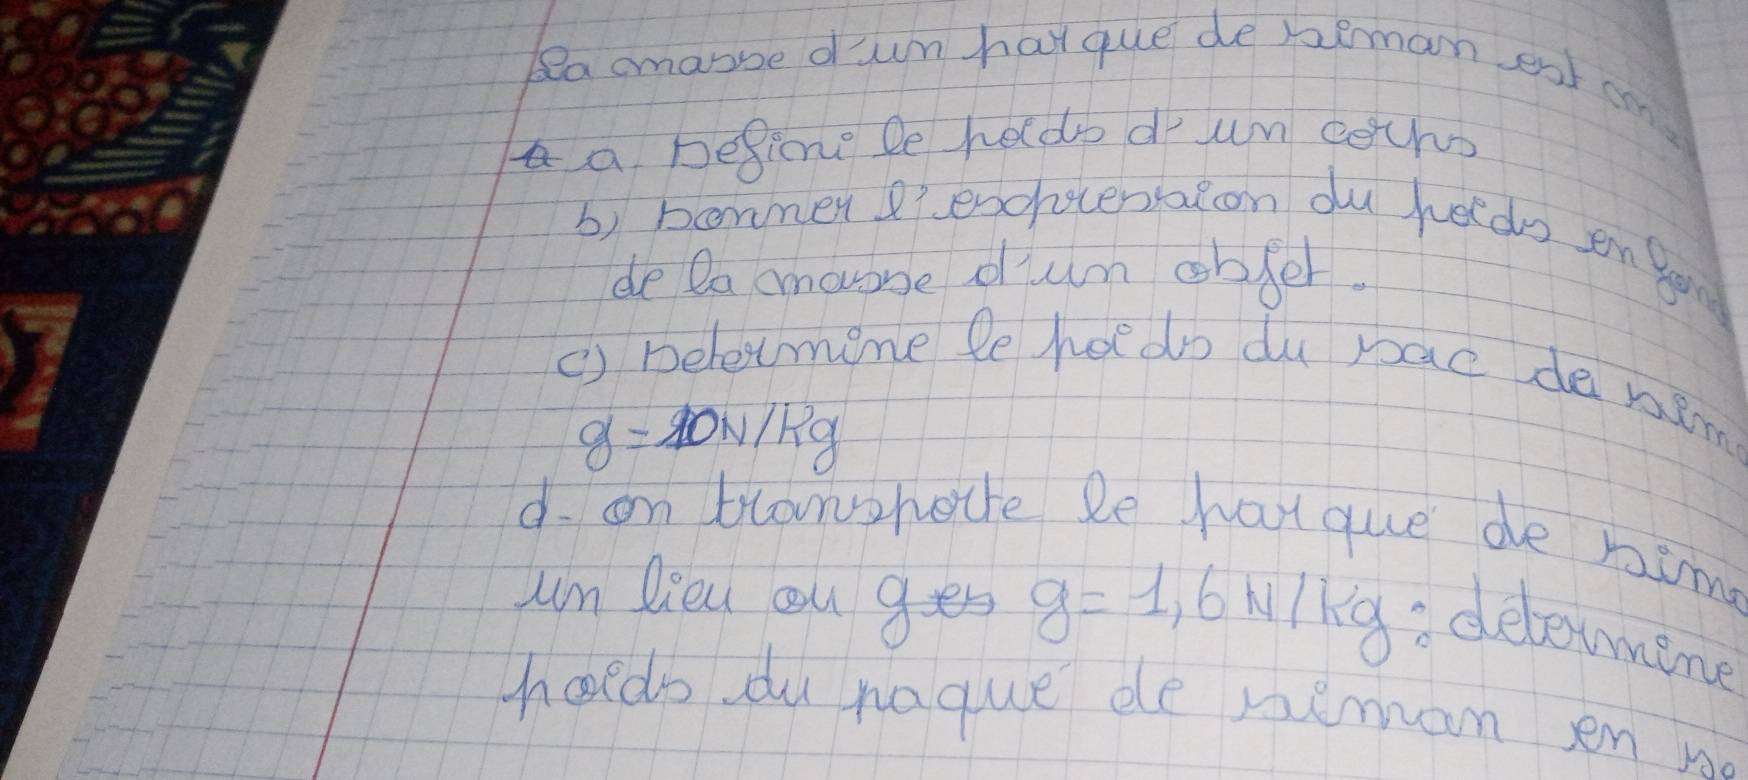 La masse d'un parque de siman est
a Defini le poids d'un corps
b) Donner l'expression du poids en
de la masse d'un objet.
c) Determine le poids du sac de
g=10N/Kg
d- on transporte le parque de
un lieu ou g=1,6N/Kg: determine
poids du paque de siman en